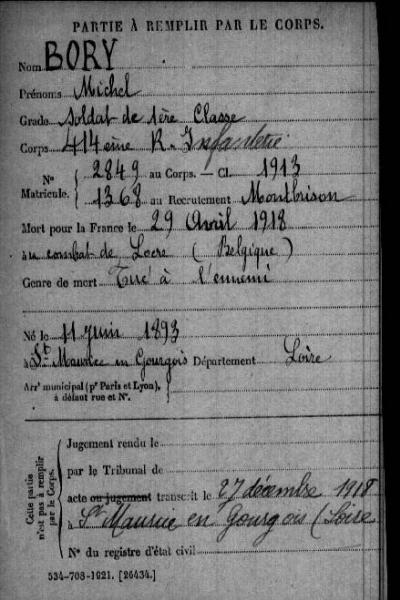 PARTIE À REMPLIR PAR LE CORPS.
Nom BORY
Prénoms Michel
Grade Soldat de 1ère Classe
Corps 414ème R. Infanterie
N° Matricule. { 2849 au Corps. — Cl. 1913
1368 au Recrutement Montbrison
Mort pour la France le 29 Avril 1918
à au combat de Locre (Belgique)
Genre de mort Tué à l'ennemi
Né le 11 Juin 1893
à St Maurice en Gourgois Département Loire
Arrt municipal (pr Paris et Lyon), à défaut rue et N°. }
Cette partie n'est pas à remplir par le Corps.
Jugement rendu le
par le Tribunal de
acte ou jugement transcrit le 27 décembre 1918
à St Maurice en Gourgois (Loire
N° du registre d'état civil
534-708-1921. [26434.]